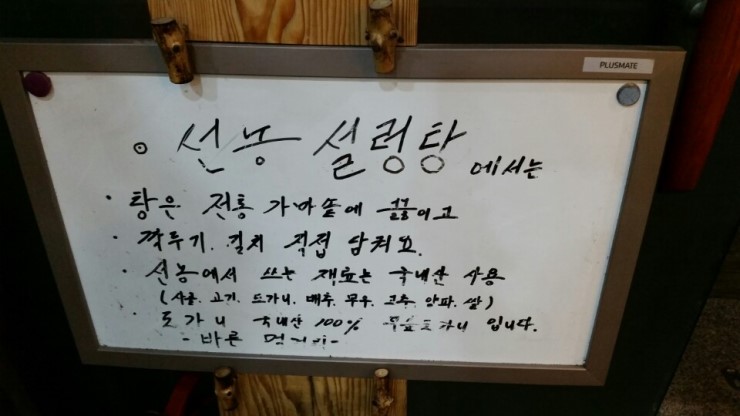 PLUSMATE
◦ 선농 설렁탕 에서는
· 탕은 전통 가마솥에 끓이고
· 깍두기. 김치 직접 담궈요.
· 선농에서 쓰는 재료는 국내산 사용
(사골. 고기. 도가니. 배추. 무우. 고추. 양파. 쌀)
· 도가니 국내산 100% 무릎도가니 입니다.
- 바른 먹거리 -